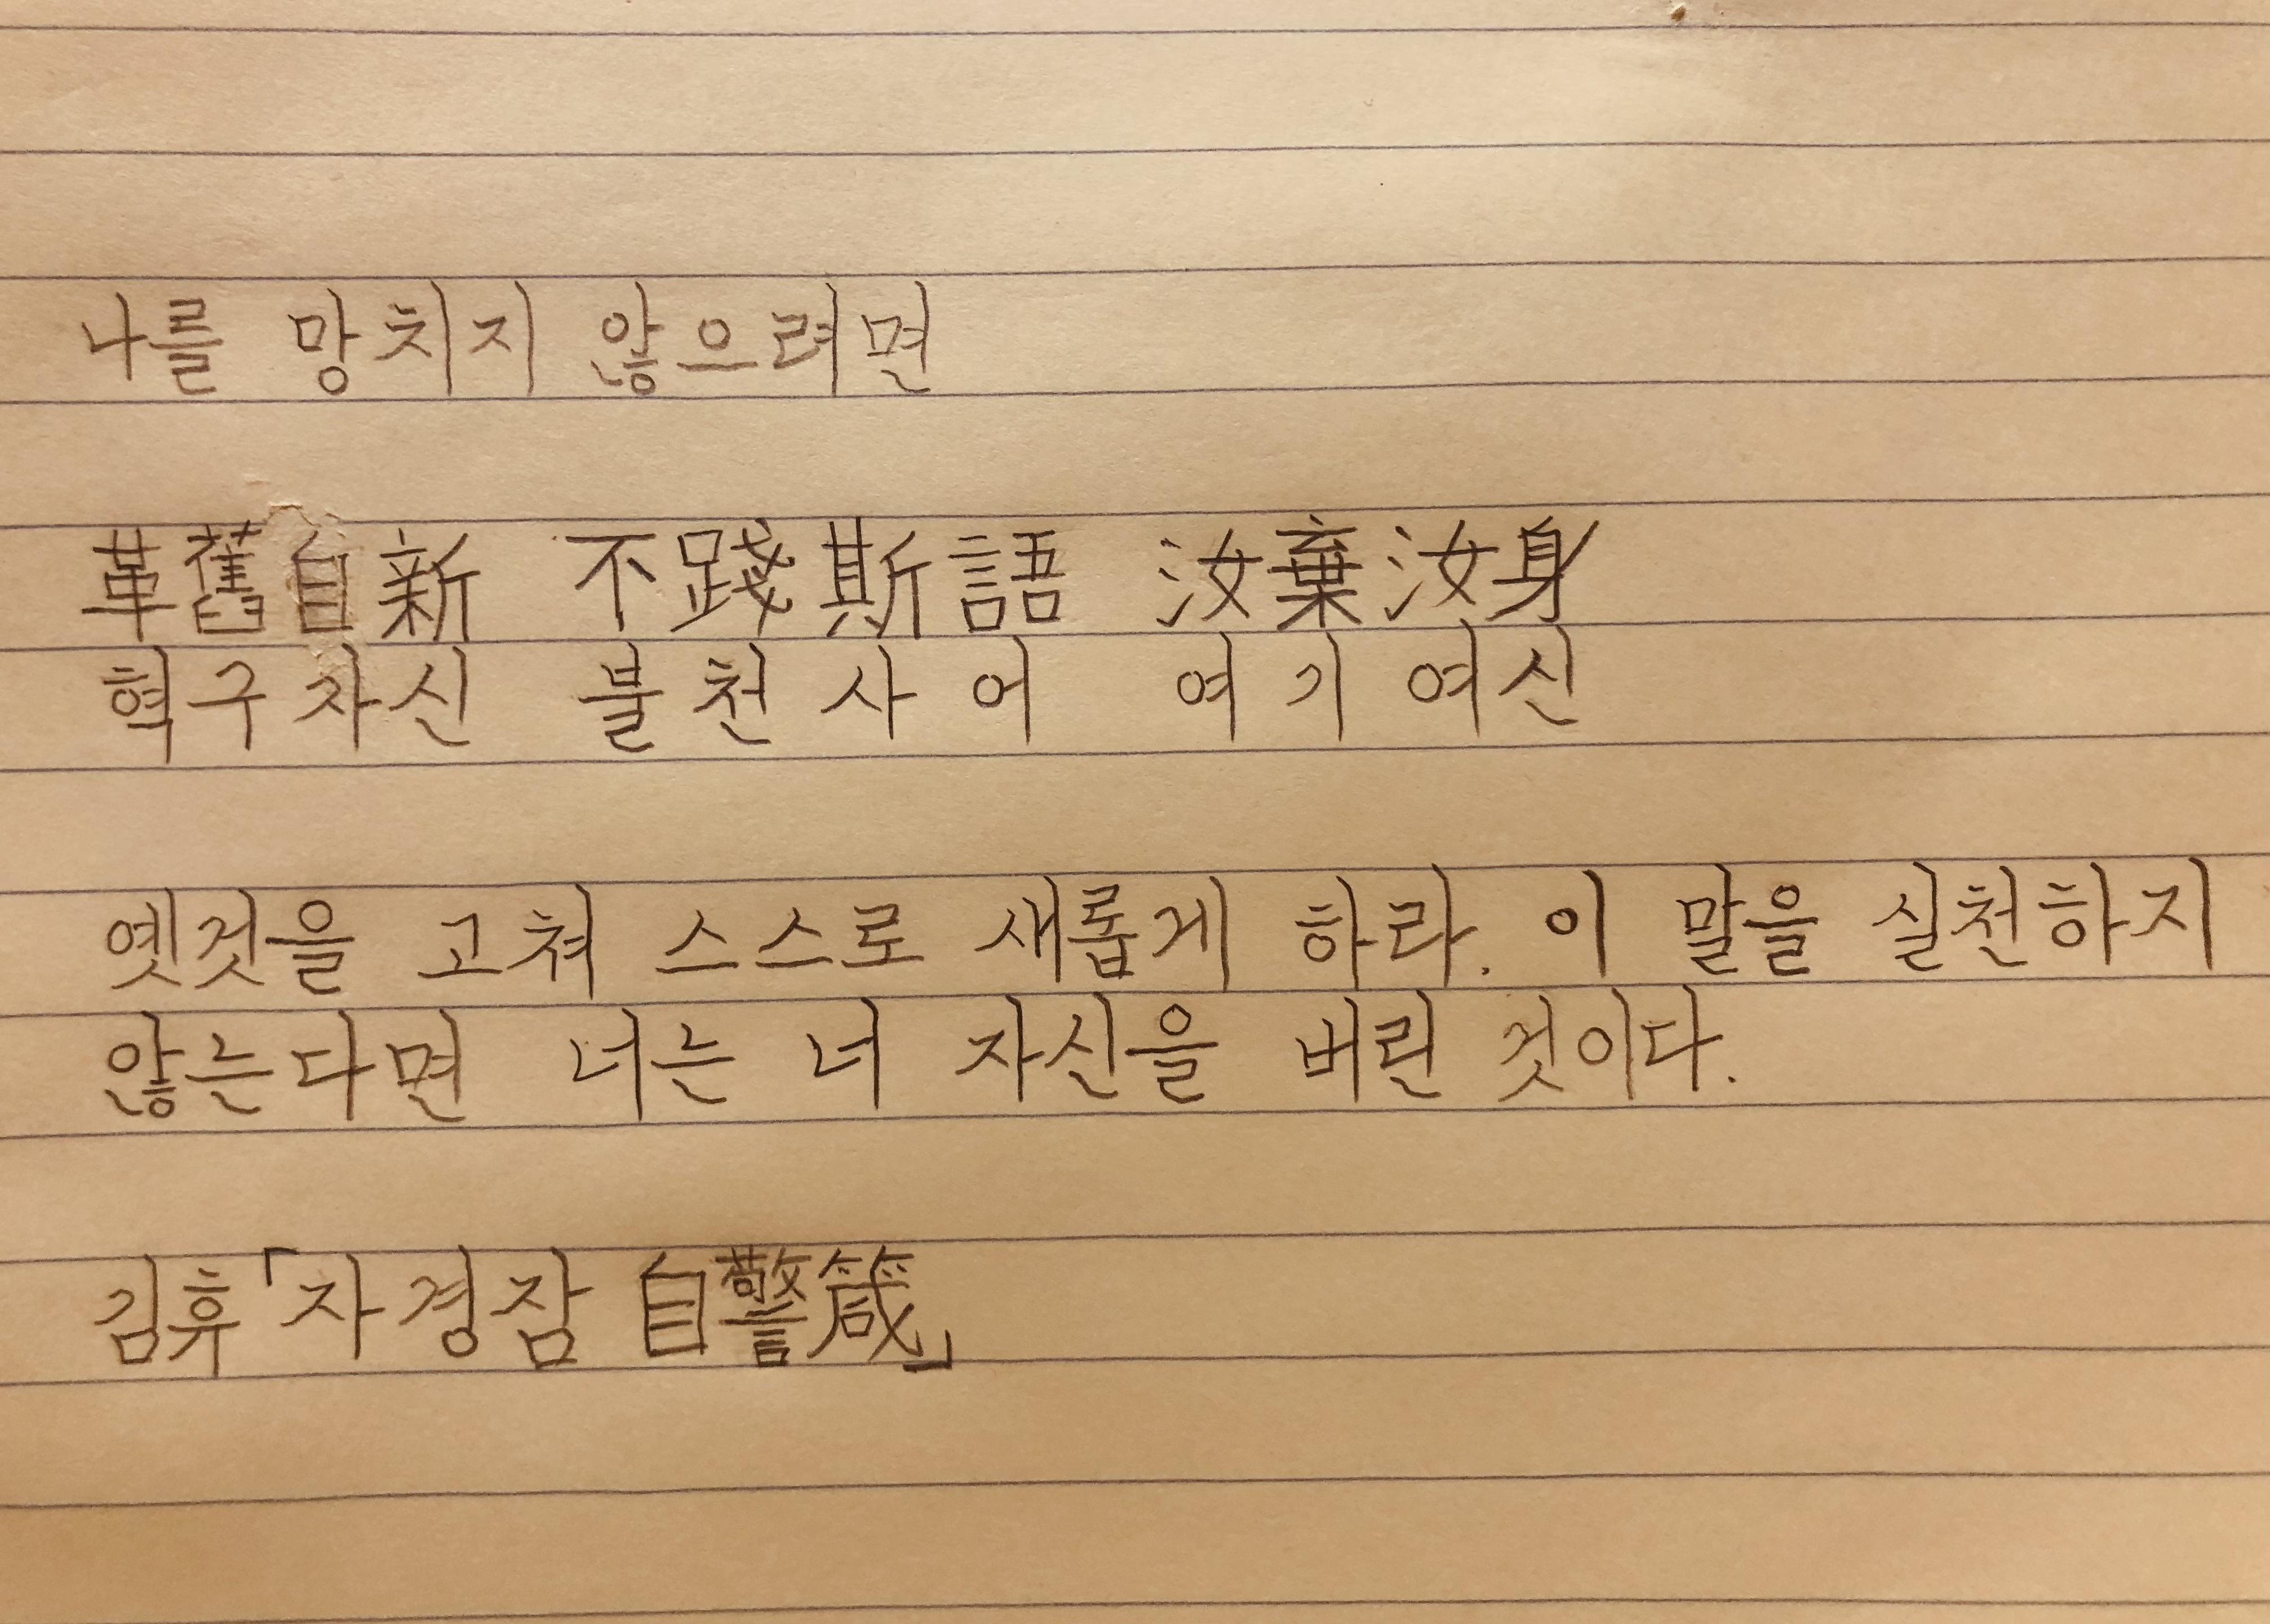 나를 망치지 않으려면
革舊自新 不踐斯語 汝棄汝身
혁구자신 불천사어 여기여신
옛것을 고쳐 스스로 새롭게 하라. 이 말을 실천하지
않는다면 너는 너 자신을 버린 것이다.
김휴 「자경잠 自警箴」